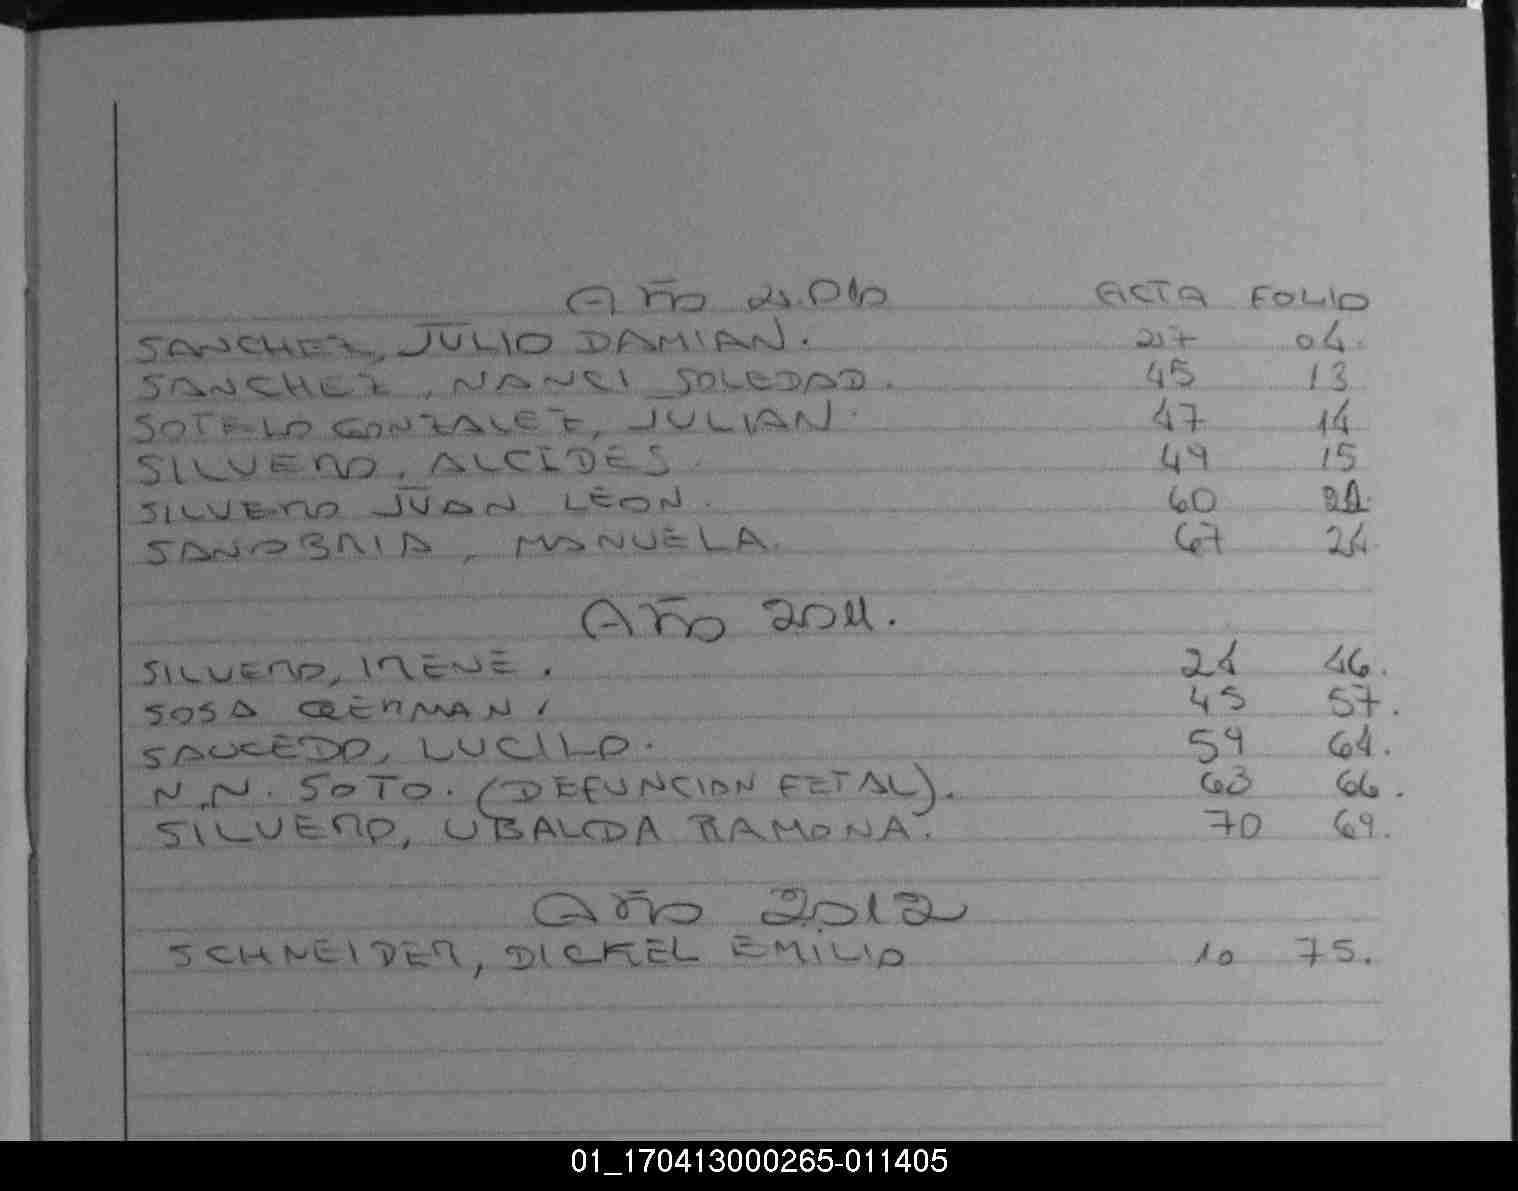 AÑO 2010 ACTA FOLIO
SANCHEZ, JULIO DAMIAN. 27 04.
SANCHEZ, NANCI SOLEDAD. 45 13
SOTELO GONZALEZ, JULIAN. 47 14
SILVERO, ALCIDES. 49 15
SILVERO JUAN LEON. 60
SANABRIA, MANUELA. 67 24
AÑO 2011.
SILVERO, IRENE. 24 46.
SOSA GERMAN, 45 57.
SAUCEDO, LUCILO. 59 64.
N.N. SOTO. (DEFUNCION FETAL). 63 66.
SILVERO, UBALDA RAMONA. 70 69.
AÑO 2012
SCHNEIDER, DICKEL EMILIO 10 75.
01_170413000265-011405